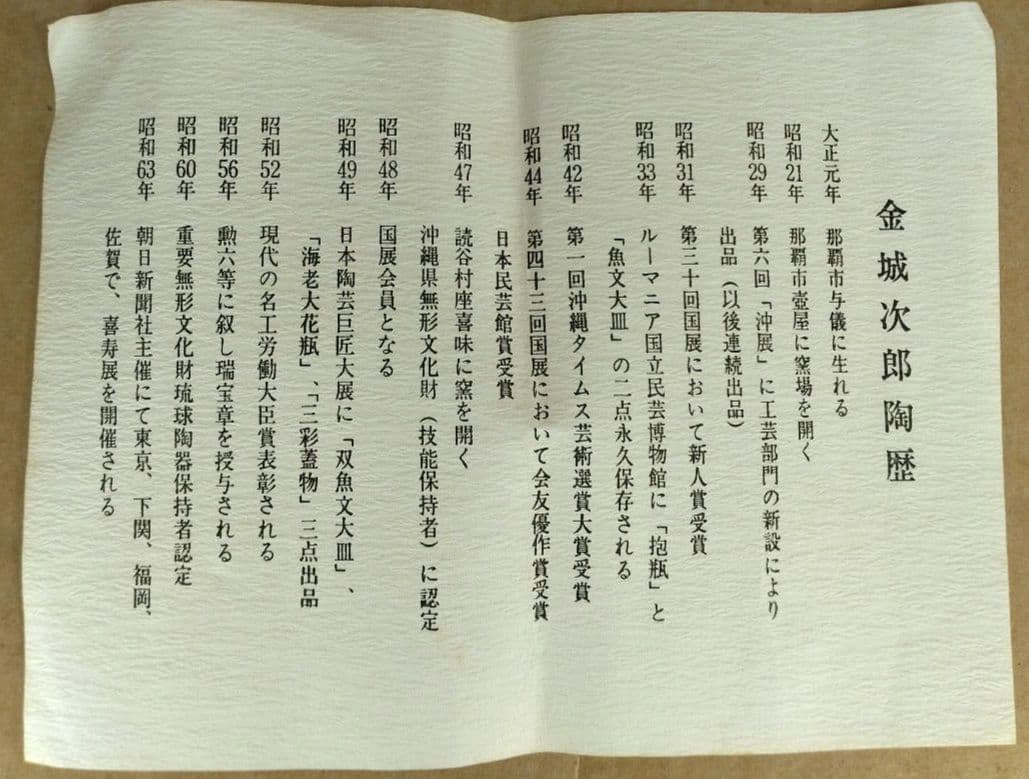 金城次郎陶歴
大正元年 那覇市与儀に生れる
昭和21年 那覇市壺屋に窯場を開く
昭和29年 第六回「沖展」に工芸部門の新設により
出品（以後連続出品）
昭和31年 第三十回国展において新人賞受賞
昭和33年 ルーマニア国立民芸博物館に「抱瓶」と
「魚文大皿」の二点永久保存される
昭和42年 第一回沖縄タイムス芸術選賞大賞受賞
昭和44年 第四十三回国展において会友優作賞受賞
日本民芸館賞受賞
昭和47年 読谷村座喜味に窯を開く
沖縄県無形文化財（技能保持者）に認定
昭和48年 国展会員となる
昭和49年 日本陶芸巨匠大展に「双魚文大皿」、
「海老大花瓶」、「三彩蓋物」三点出品
昭和52年 現代の名工労働大臣賞表彰される
昭和56年 勲六等に叙し瑞宝章を授与される
昭和60年 重要無形文化財琉球陶器保持者認定
昭和63年 朝日新聞社主催にて東京、下関、福岡、
佐賀で、喜寿展を開催される